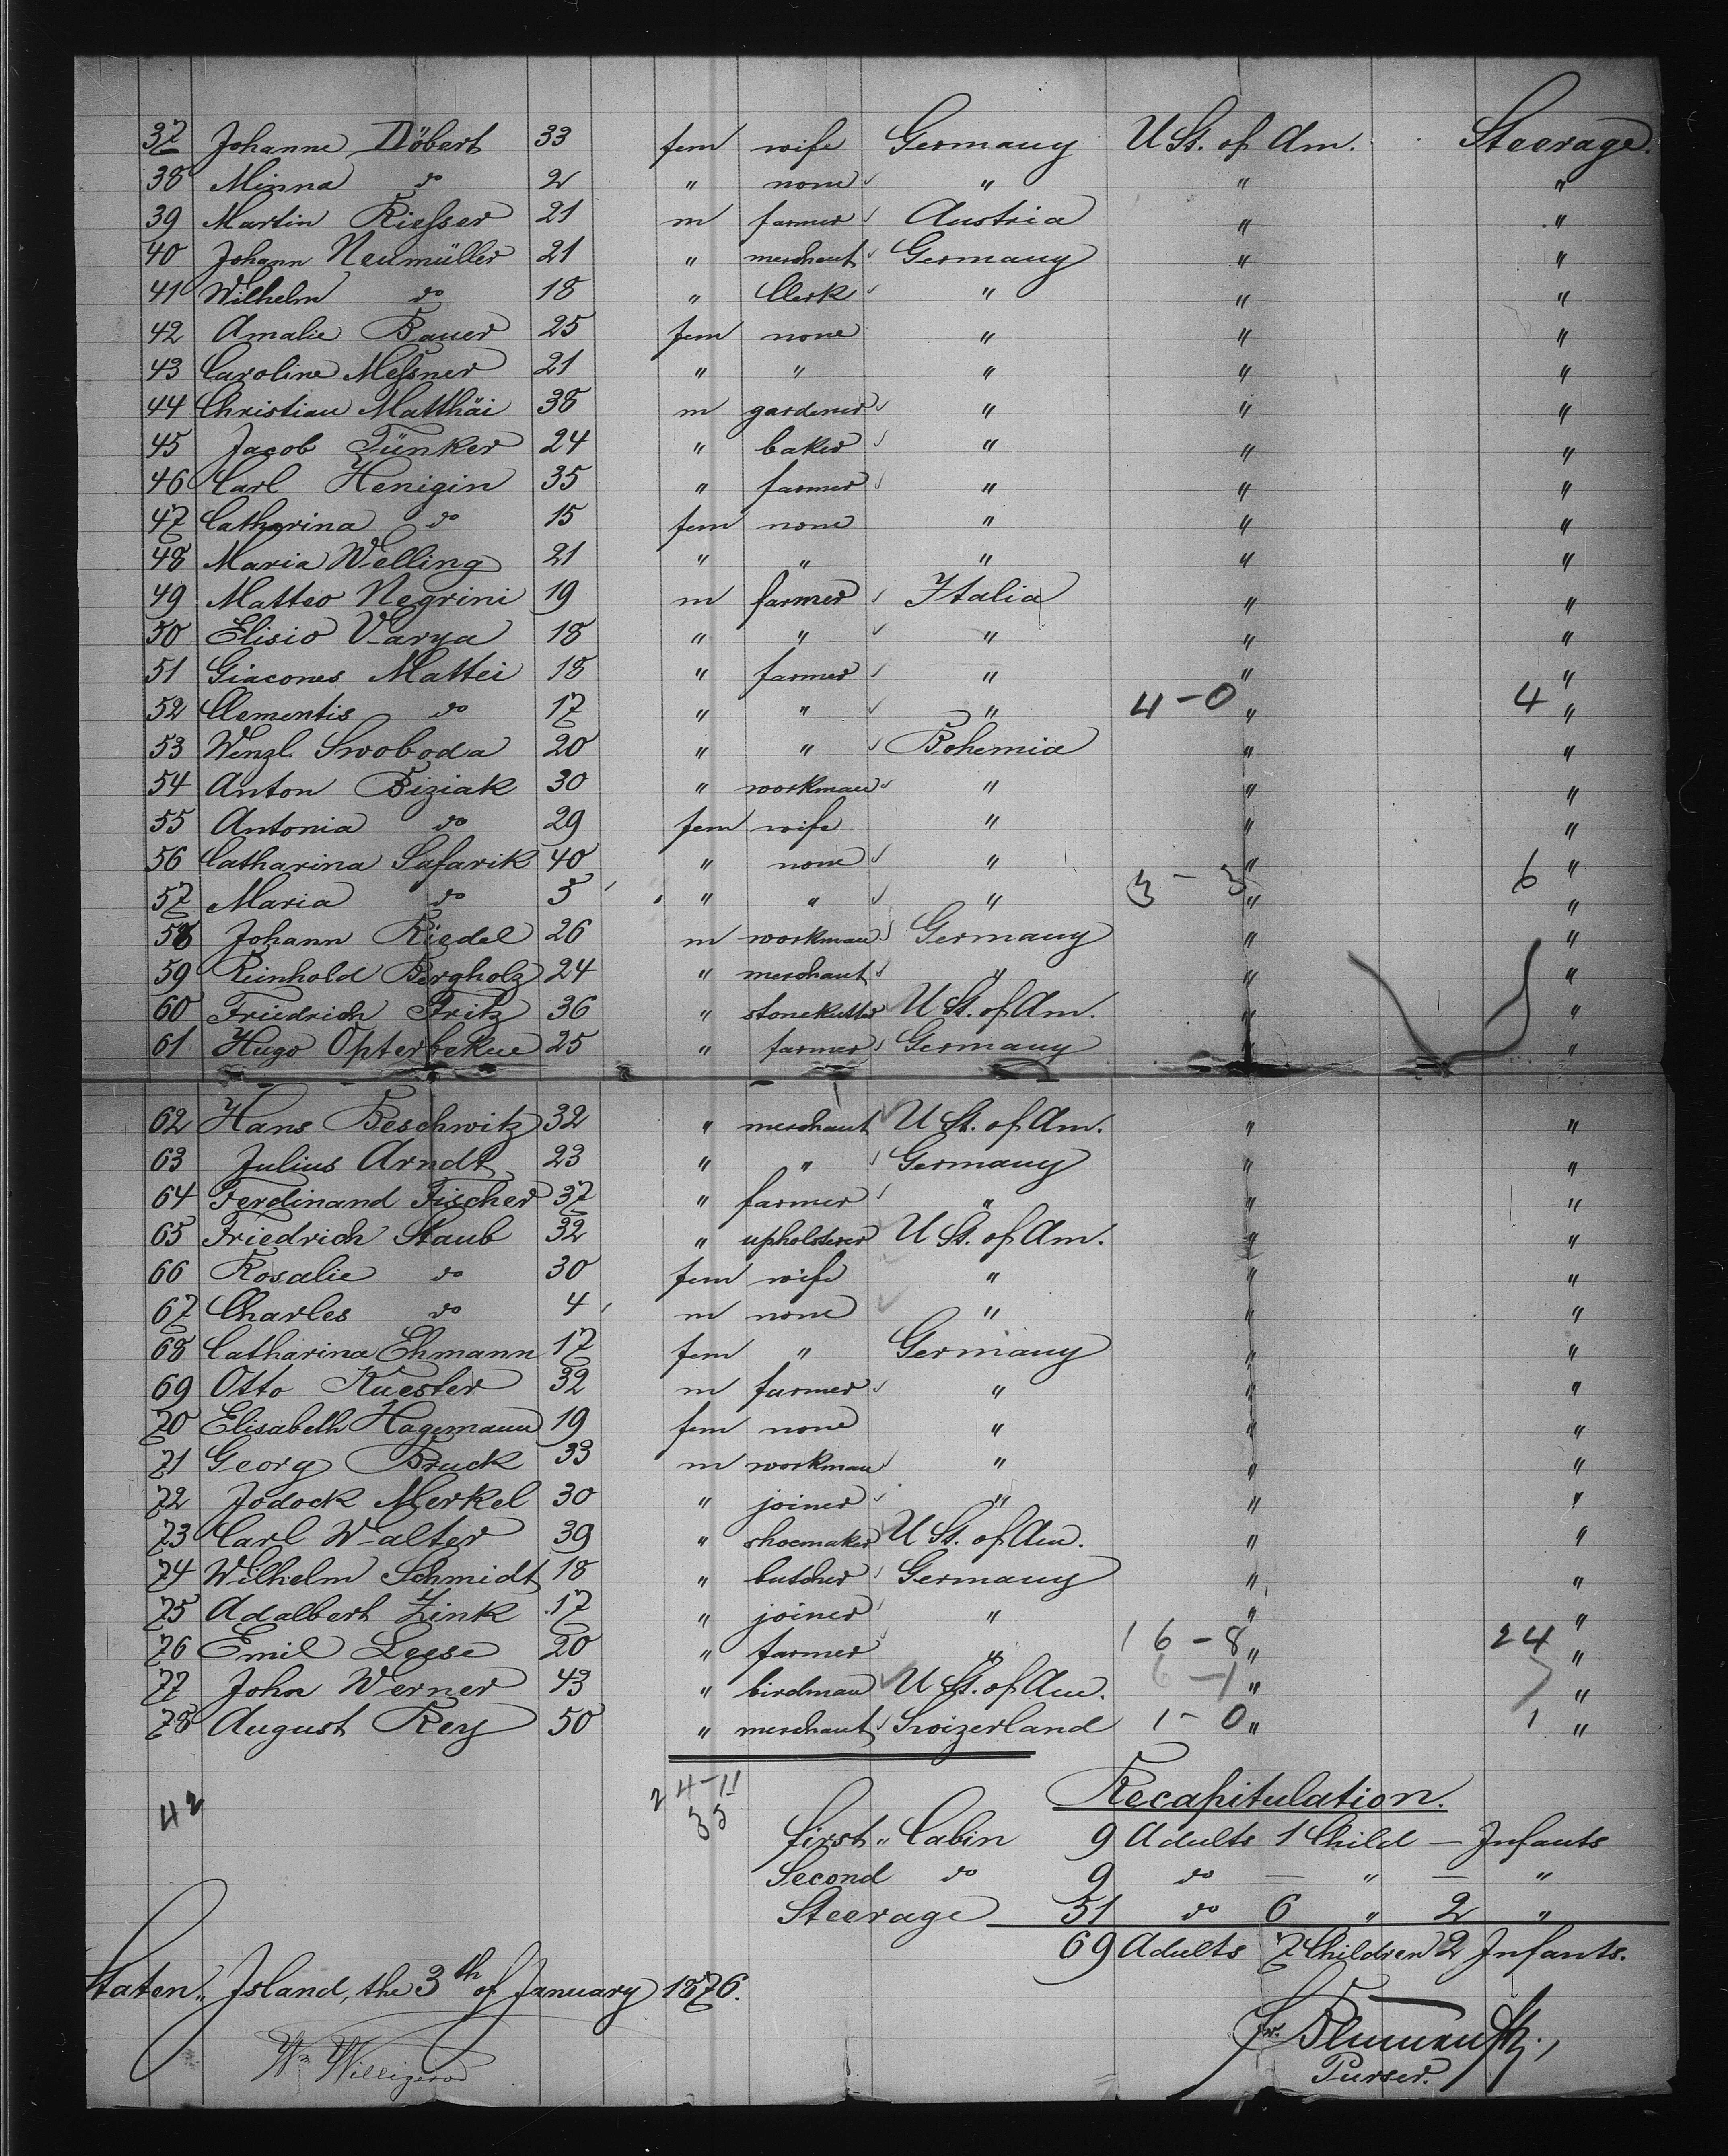 37 Johanne Döbert 33 fem wife Germany U St. of Am. Steerage.
38 Minna do 2 " none " " "
39 Martin Rießer 21 m farmer Austria " "
40 Johann Neumüller 21 " merchant Germany " "
41 Wilhelm do 18 " Clerk " " "
42 Amalie Bauer 25 fem none " " "
43 Caroline Meßner 21 " " " " "
44 Christian Matthäi 38 m gardener " " "
45 Jacob Tünker 24 " baker " " "
46 Carl Henigin 35 " farmer " " "
47 Catharina do 15 fem none " " "
48 Maria Welling 21 " " " " "
49 Matteo Negrini 19 m farmer Italia " "
50 Elisio Varya 18 " " " " "
51 Giacones Mattei 18 " farmer " " "
52 Clementis do 17 " " " 4-0 " 4 "
53 Wenzl. Swoboda 20 " " Bohemia " "
54 Anton Biziak 30 " workman " " "
55 Antonia do 29 fem wife " " "
56 Catharina Safarik 40 " none " " "
57 Maria do 5 " " " 3-3 " 6 "
58 Johann Riedel 26 m workman Germany " "
59 Reinhold Bergholz 24 " merchant " " "
60 Friedrich Fritz 36 " stonekutter U St. of Am. " "
61 Hugo Opterbekue 25 " farmer Germany " "
62 Hans Beschwitz 32 " merchant U St. of Am. " "
63 Julius Arndt 23 " " Germany " "
64 Ferdinand Fischer 37 " farmer " " "
65 Friedrich Staub 32 " upholsterer U St. of Am. " "
66 Rosalie do 30 fem wife " " "
67 Charles do 4 m none " " "
68 Catharina Ehmann 17 fem " Germany " "
69 Otto Kuester 32 m farmer " " "
70 Elisabeth Hagemann 19 fem none " " "
71 Georg Bruck 33 m workman " " "
72 Jodock Merkel 30 " joiner " " "
73 Carl Walter 39 " shoemaker U St. of Am. " "
74 Wilhelm Schmidt 18 " butcher Germany " "
75 Adalbert Zink 17 " joiner " " "
76 Emil Leese 20 " farmer " 16-8 " 24 "
77 John Werner 43 " birdman U St. of Am. 6-1 " 7 "
78 August Rey 50 " merchant Swizerland 1-0 " 1 "
42 24-11 Recapitulation.
35
first " Cabin 9 Adults 1 Child — Infants
Second do 9 do — " — "
Steerage 51 do 6 " 2 "
69 Adults 7 Children 2 Infants.
Staten " Island, the 3th of January 1876.
Wm Willigerod
Purser.